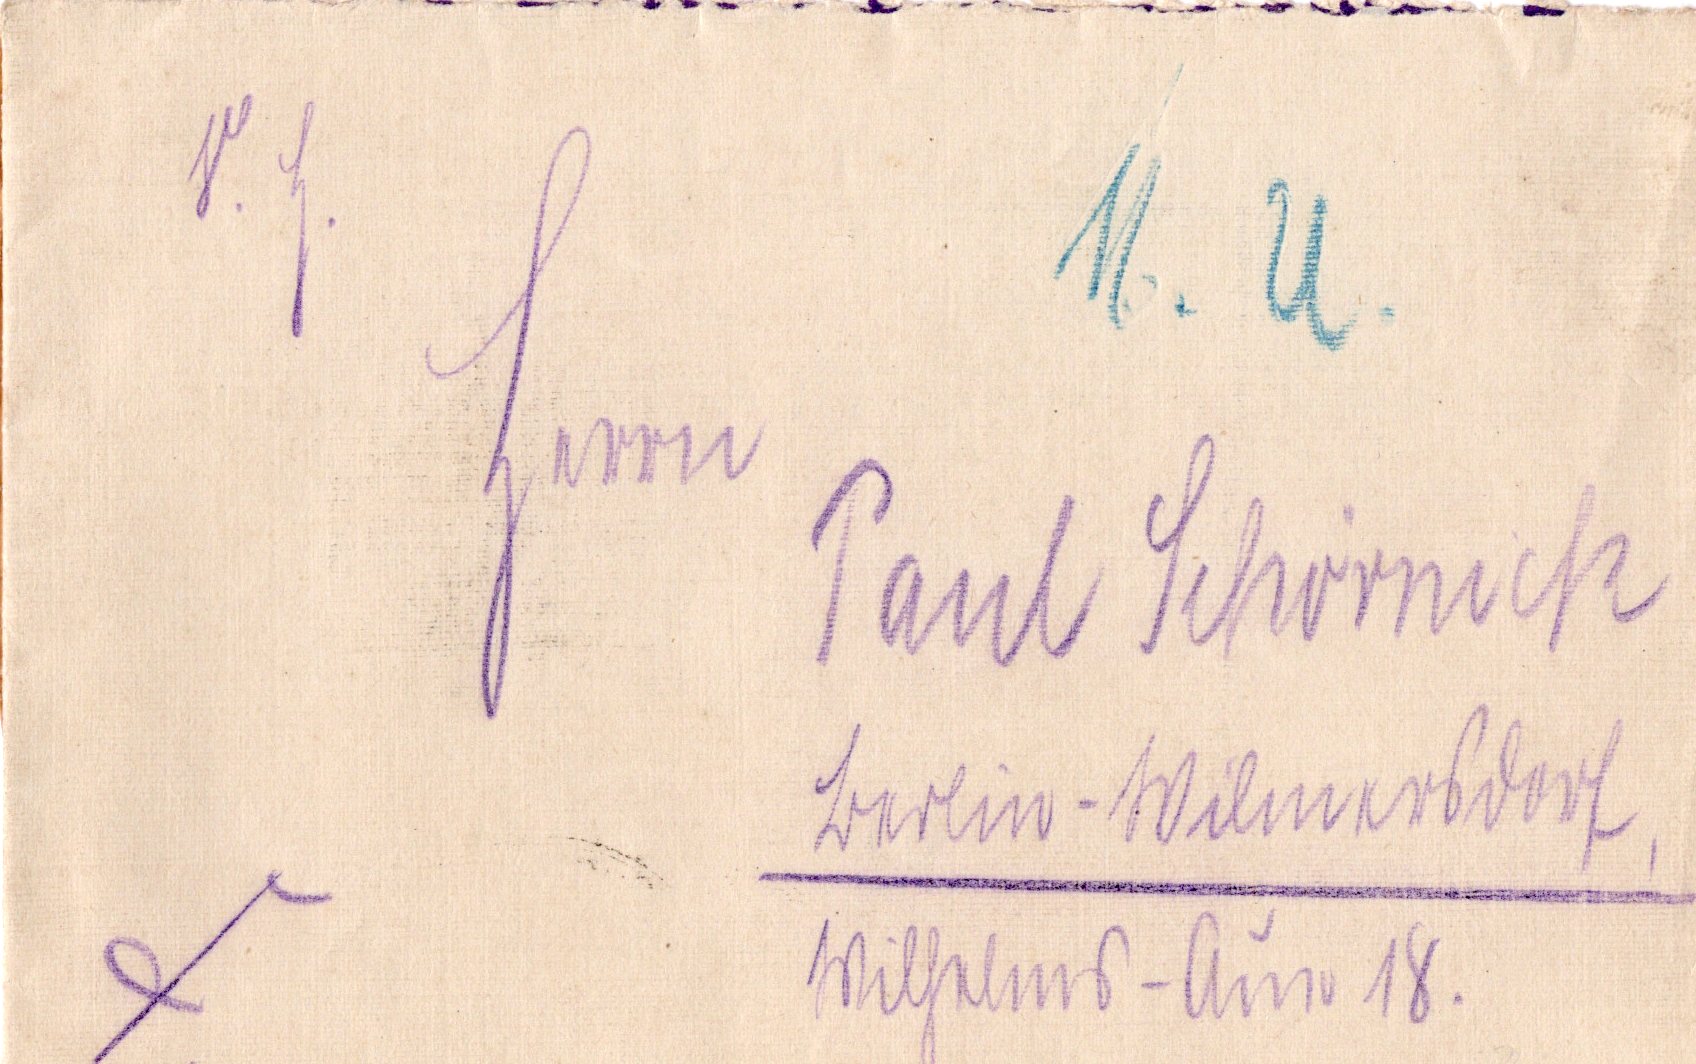 M. U.
Herrn
Paul Schörnick
Berlin-Wilmersdorf,
Wilhelms-Aue 18.